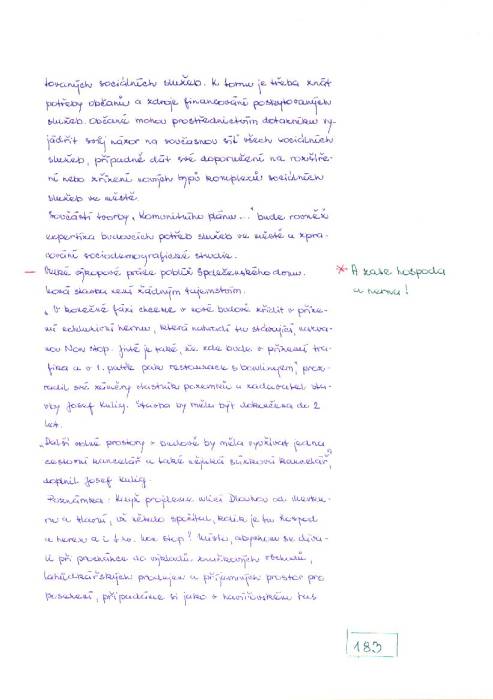 tovaných sociálních služeb. K tomu je třeba znát
potřeby občanů a zdroje financování poskytovaných
služeb. Občané mohou prostřednictvím dotazníku vy-
jádřit svůj názor na současnou síť všech sociálních
služeb, případně dát své doporučení na rozšíře-
ní nebo zřízení nových typů komplexů sociálních
služeb ve městě.
Součástí tvorby „Komunitního plánu..." bude rovněž
expertiza budoucích potřeb služeb ve městě a zpra-
cování sociodemografické studie.
— Velké výkopové práce poblíž Společenského domu.
* A zase hospoda
a herna!
Nová stavba není žádným tajemstvím.
„V konečné fázi chceme v nové budově zřídit v příze-
mí exkluzivní hernu, která nahradí tu stávající, nazva-
nou Non stop. Jisté je také, že zde bude v přízemí tra-
fika a v 1. patře pak restaurace s bowlingem", proz-
radil své záměry vlastník pozemků a zadavatel stav-
by Josef Kulig. Stavba by měla být dokončena do 2
let.
„Další volné prostory v budově by měla využívat jedna
cestovní kancelář a také nějaká kancelář,"
doplnil Josef Kulig.
Poznámka: Když projdeme ulicí Dlouhou od
na Hlavní, už někdo spočítal, kolik je tu hospod
a heren a i t.zv. non stop? Místo, abychom se díva-
li při procházce do výkladů značkových obchodů,
lahůdkářských prodejen a příjemných prostor pro
posezení, připadáme si jako v havířovském
183